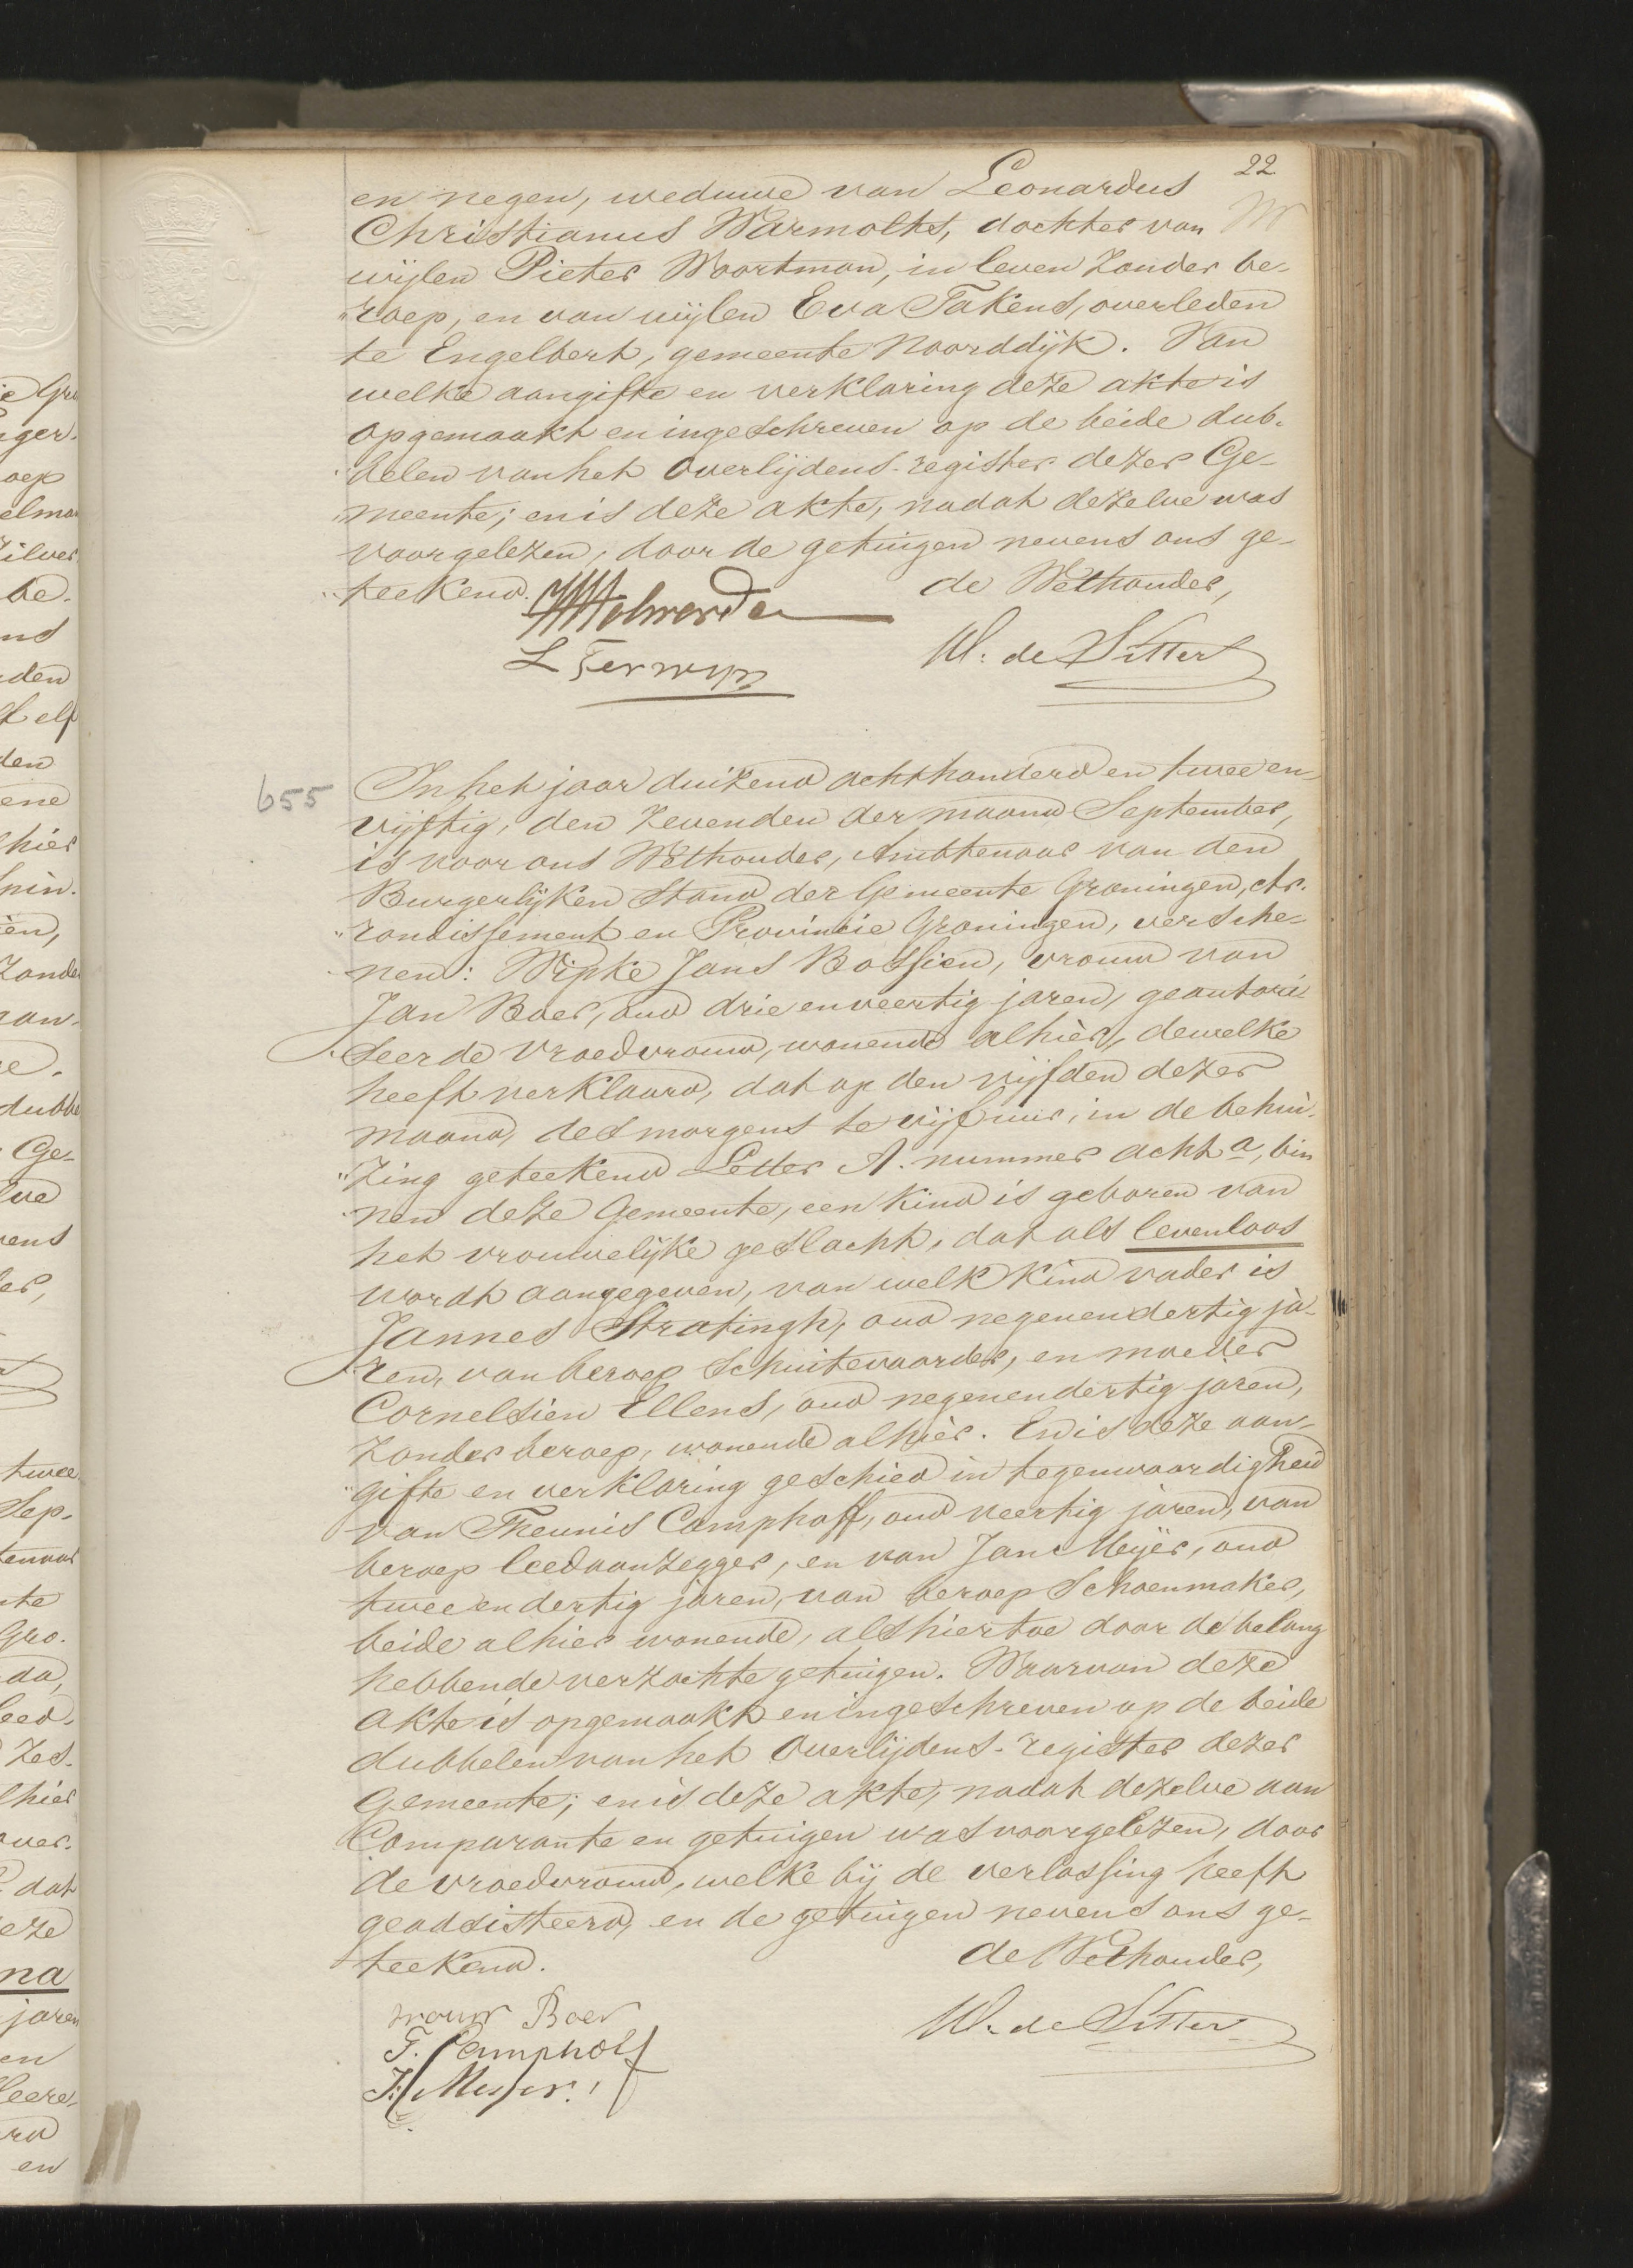 22
en negen, weduwe van Leonardus
Christianus Warmolts, dochter van
wijlen Pieter Woortman, in leven zonder be-
"roep, en van wijlen Eva Takens, overleden
te Engelbert, gemeente Noorddijk. Van
welke aangifte en verklaring deze akte is
opgemaakt en ingeschreven op de beide dub-
"belen van het Overlijdens-register dezer Ge-
"meente; en is deze akte, nadat dezelve was
voorgelezen, door de getuigen nevens ons ge-
"teekend.
de Wethouder,
L Terwijn
W. de Sitter
655
In het jaar duizend achthonderd en twee en
vijftig, den zevenden der maand September,
is voor ons Wethouder, Ambtenaar van den
Burgerlijken Stand der Gemeente Groningen, Ar-
"rondissement en Provincie Groningen, versche-
"nen: Wipke Jans Bossien, vrouw van
Jan Boer, oud drie en veertig jaren, geautori-
"seerde vroedvrouw, wonende alhier, dewelke
heeft verklaard, dat op den vijfden dezer
maand, des morgens te vijf uur, in de behui-
"zing geteekend Letter A. nummer acht a, bin
"nen deze Gemeente, een kind is geboren van
het vrouwelijke geslacht, dat als levenloos
wordt aangegeven, van welk kind vader is
Jannes Stratingh, oud negenendertig ja-
"ren, van beroep Schuitevaarder, en moeder
Cornelsien Ellens, oud negenendertig jaren,
zonder beroep, wonende alhier. En is deze aan-
"gifte en verklaring geschied in tegenwoordigheid
van Theunis Camphoff, oud veertig jaren, van
beroep leedaanzegger, en van Jan Meijer, oud
twee en dertig jaren, van beroep Schoenmaker,
beide alhier wonende, als hiertoe door de belang
hebbende verzochte getuigen. Waarvan deze
akte is opgemaakt en ingeschreven op de beide
dubbelen van het Overlijdens-register dezer
Gemeente; en is deze akte, nadat dezelve aan
Comparante en getuigen was voorgelezen, door
de vroedvrouw, welke bij de verlossing heeft
geadsisteerd, en de getuigen nevens ons ge-
"teekend.
de Wethouder,
vrouw Boer
W. de Sitter
T. Camphoff
J. Meijer.